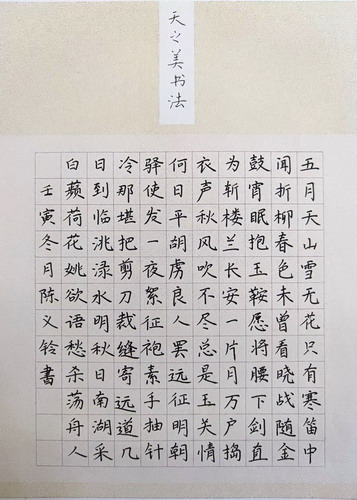 天之美书法
五月天山雪无花只有寒笛中
闻折柳春色未曾看晓战随金
鼓宵眠抱玉鞍愿将腰下剑直
为斩楼兰长安一片月万户捣
衣声秋风吹不尽总是玉关情
何日平胡虏良人罢远征明朝
驿使发一夜絮征袍素手抽针
冷那堪把剪刀裁缝寄远道几
日到临洮渌水明秋日南湖采
白蘋荷花娇欲语愁杀荡舟人
壬寅冬月陈义铃书